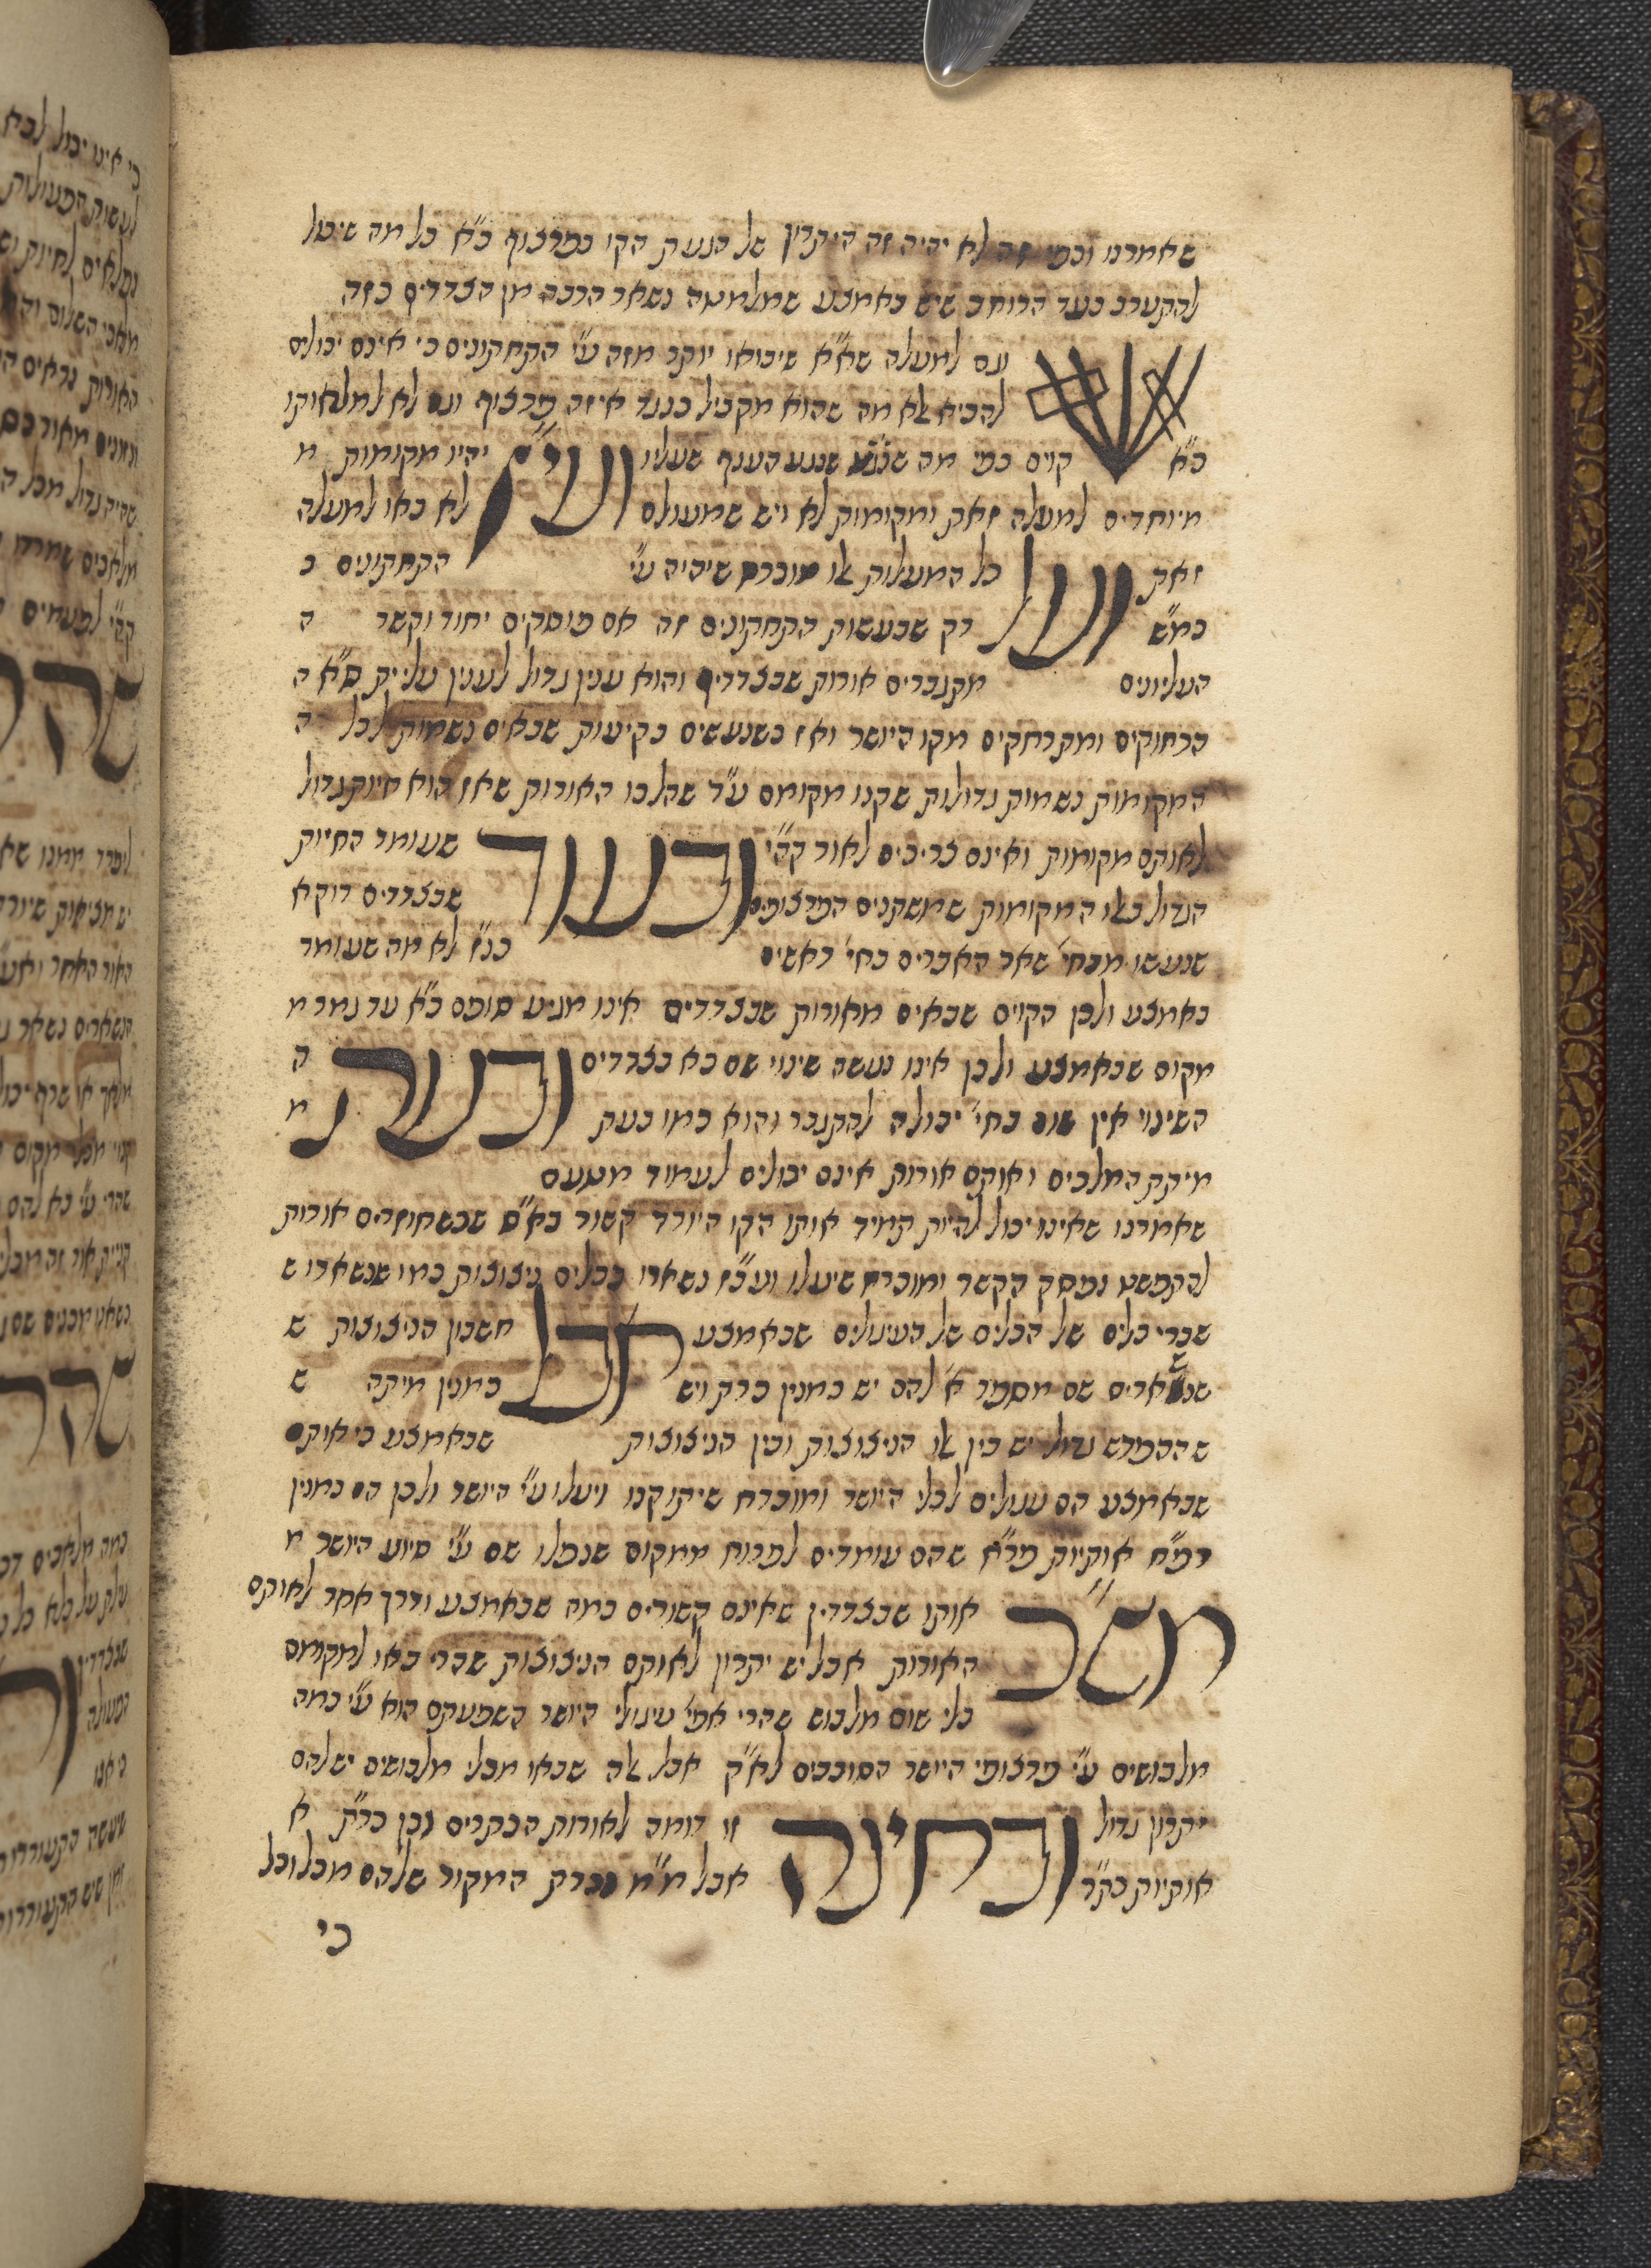 שאמרנו וכפי זה לא יהיה זה היתרון של הגעת הקו בפרצוף כ"א כל מה שיכול
להתערב בעד הרוחב שיש באמצע שמלמטה נשאר הרבה מן הצדדים כזה
וגם למעלה שא"א שיבואו יותר מזה ע"י התחתונים כי אינם יכולים
להביא אלא מה שהוא מקביל כנגד איזה פרצוף וגם לא למלאותו
כ"א קוים כפי מה שנוגע הענף שעליו ועי"ן יהיו מקומות מ
מיוחדים למעלה זאת ומקומות לא ויש שמעולם לא באו למעלה
זאת ועל כל המעלות אלו מוכרח שיהיה ע"י התחתונים כ
כמ"ש רק שבעשות התחתונים זה אם פוסקים יחוד וקשר ה
העליונים מתגברים אורות שבצדדין והוא ענין גדול לענין עליית ס"א ה
הרחוקים ומתרחקים מקו היושר ואז כשנעשים בקיעות שבאים נשמות לכל ה
המקומות נשמות גדולות שקנו מקומם ע"ד שהלכו האורות שאז הוא חיות גדול
לאותם מקומות ואינם צריכים לאור קה"י ובעוד שעומד החיות
הגדול באלו המקומות שמשתנים הפרצופים שבצדדים דוקא
שנעשו מבחי' שאר האברים בחי' ראשים כנ"ז לא מה שעומד
באמצע ולכן הקוים שבאים מאורות שבצדדים אינו מגיע סופם כ"א עד גמר מ
מקום שבאמצע ולכן אינו נעשה שינוי שם בא בצדדים ובעת ה
השינוי אין שום בחי' יכולה להתגבר והוא כמו בעת מ
מיתת המלכים ואותם אורות אינם יכולים לעמוד מטעם
שאמרנו שאינו יכול להיות תמיד אותו הקו היורד קשור בא"ס שכשחוזרים אורות
להתפשט נפסק הקשר ומוכרח שיעלו ועכ"ז נשארו בכלים ניצוצות כמו שנשארו ש
שברי כלים של הכלים של העיגולים שבאמצע אבל חשבון הניצוצות ש
שנשארים שם מספר א' להם יש כמנין פרק ויש כמנין מיתה ש
שההפרש גדול יש בין אלו הניצוצות ובין הניצוצות שבאמצע כי אותם
שבאמצע הם עגולים לכלי היושר ומוכרח שיתוקנו ויעלו ע"י היושר ולכן הם כמנין
רפ"ח אותיות פר"ח שהם עומדים לפרוח ממקום שנפלו שם ע"י סיוע היושר מ
משא"כ אותו שבצדדין שאינם קשורים כמה שבאמצע ודרך אחר לאותם
האורות אבל יש יתרון לאותם הניצוצות שהרי באו למקומם
בלי שום מלבוש שהרי אפי' עיגולי היושר השפעתם הוא ע"י כמה
מלבושים ע"י פרצופי היושר הסובבים לא"ק אבל אלה שבאו מבלי מלבושים יש להם
יתרון גדול ובחינה זו דומה לאורות הבתרים וכן כר"ת א
אותיות כת"ר אבל מ"מ נכרת המקור שלהם מכל וכל
כי